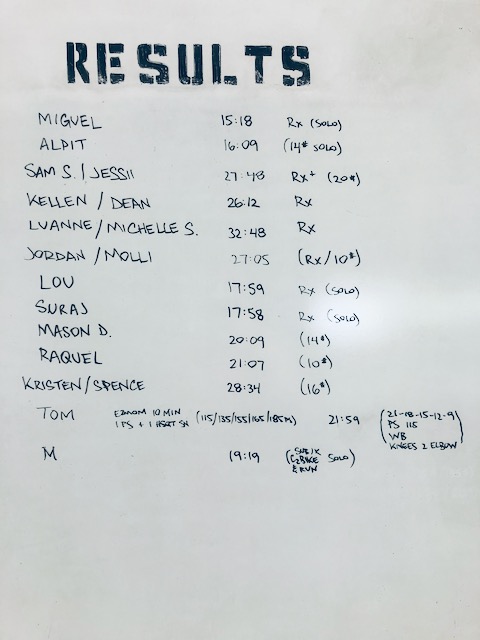 RESULTS
MIGUEL 15:18 Rx (SOLO)
ALPIT 16:09 (14# SOLO)
SAM S. / JESSII 27:48 Rx+ (20#)
KELLEN / DEAN 26:12 Rx
LUANNE / MICHELLE S. 32:48 Rx
JORDAN / MOLLI 27:05 (Rx/10#)
LOU 17:59 Rx (SOLO)
SURAJ 17:58 Rx (SOLO)
MASON D. 20:09 (14#)
RAQUEL 21:07 (10#)
KRISTEN/SPENCE 28:34 (16#)
TOM 10 MIN 21:59 (21-18-15-12-9
1 PS + 1 PS 115
WB
KNEES 2 ELBOW)
M 19:19 SOLO)
& RUN